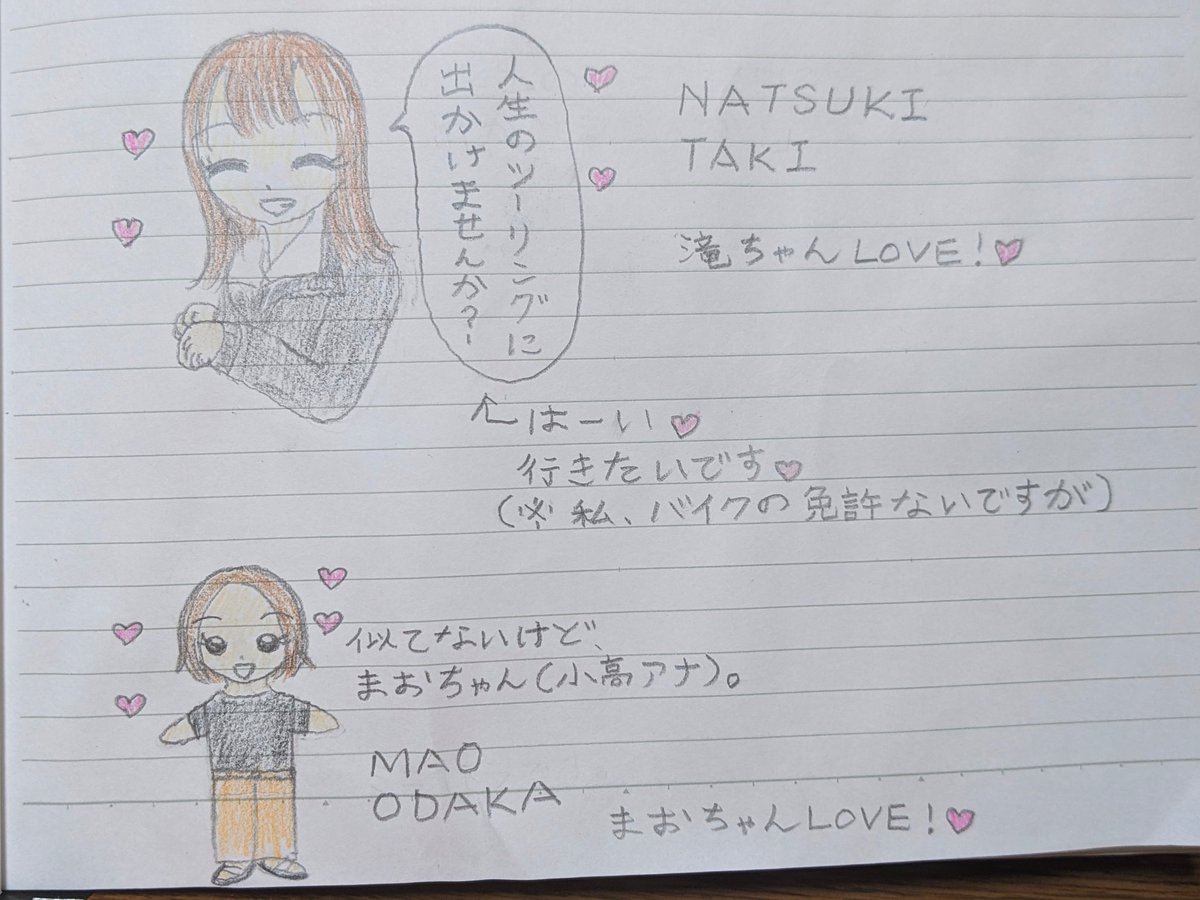 人生のツーリングに
出かけませんか?
NATSUKI
TAKI
滝ちゃんLOVE!♥
←はーい♥
行きたいです♥
(※私、バイクの免許ないですが)
似てないけど、
まおちゃん(小高アナ)。
MAO
ODAKA
まおちゃんLOVE!♥